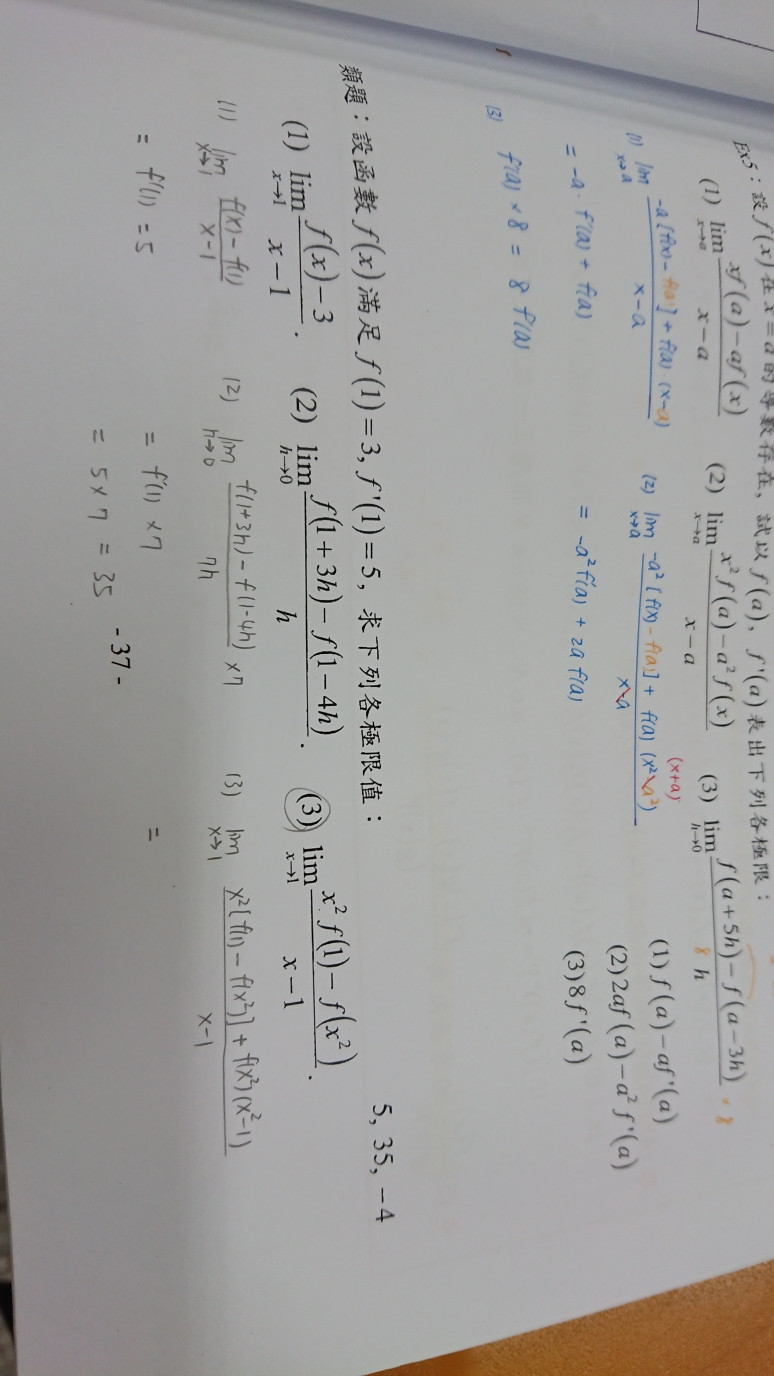 Ex5：設 f(x) 在 x=a 的導數存在，試以 f(a)、f'(a) 表出下列各極限：
(1) lim_{x→a} (xf(a)−af(x))/(x−a) (2) lim_{x→a} (x²f(a)−a²f(x))/(x−a) (3) lim_{h→0} (f(a+5h)−f(a−3h))/(8h) ×8
(1) f(a)−af'(a)
(2) 2af(a)−a²f'(a)
(3) 8f'(a)
(1) lim_{x→a} (-a[f(x)-f(a)]+f(a)·(x-a))/(x-a)
= -a·f'(a)+f(a)
(2) lim_{x→a} (-a²[f(x)-f(a)]+f(a)(x²-a²))/(x-a) (x+a)
= -a²f'(a)+2af(a)
(3) f'(a)×8 = 8f'(a)
類題：設函數 f(x) 滿足 f(1)=3, f'(1)=5，求下列各極限值：
5, 35, −4
(1) lim_{x→1} (f(x)−3)/(x−1). (2) lim_{h→0} (f(1+3h)−f(1−4h))/h. (3) lim_{x→1} (x²f(1)−f(x²))/(x−1).
(1) lim_{x→1} (f(x)-f(1))/(x-1)
= f'(1) = 5
(2) lim_{h→0} (f(1+3h)-f(1-4h))/(7h) ×7
= f'(1)×7
= 5×7 = 35
(3) lim_{x→1} (x²[f(1)-f(x²)]+f(x²)(x²-1))/(x-1)
=
-37-